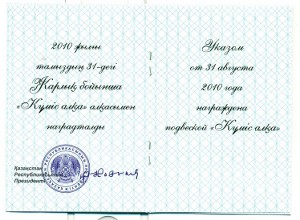 2010 жылы
тамыздың 31-дегі
Жарлық бойынша
«Күміс алқа» алқасымен
наградталды
Қазақстан
Республикасының
Президенті
Указом
от 31 августа
2010 года
награждена
подвеской «Күміс алқа»